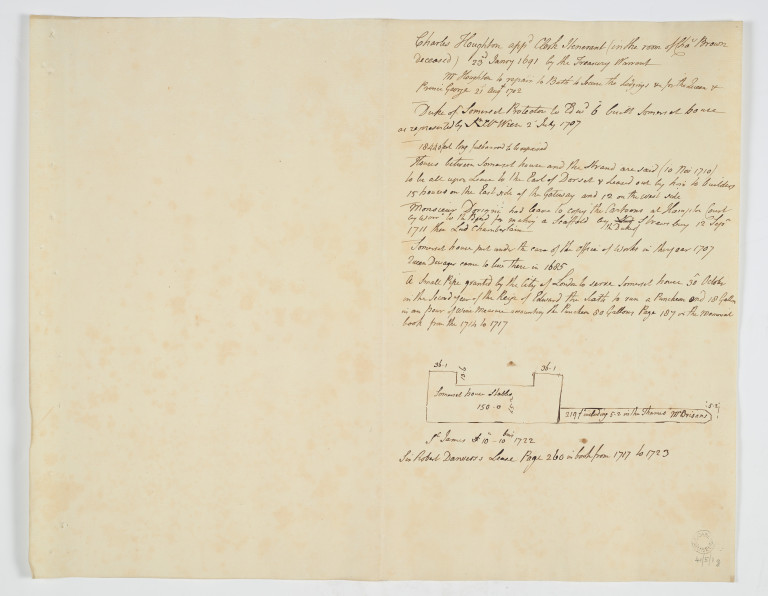 Charles Houghton appd Clerk Itenerant (in the room of Chas Brown
deceased) 23d Janry 1691 by the Treasury Warrant
Mr Houghton to repair to Bath to secure the Lodgings & for the Queen &
Prince George 21 Augt 1702
Duke of Somerset Protector to Edwd 6 built Somerset house
as represented by Sr Cr Wren 2 July 1707
1844 feet long
Houses between Somerset house and the Strand are said (10 Nov 1710)
to be all upon Lease to the Earl of Dorset & Leased out by him to builders
15 houses on the East side of the Gateway and 12 on the west side
Monsieur Dorigni had leave to copy the Cartoons at Hampton Court
by warrt to the Board for making a Scaffold by Shrewsbury 12 Septr
the Duke of
1711 then Lord Chamberlain
Somerset house put under the care of the office of Works in the year 1707
Queen Dowager came to live there in 1685
A Small Pipe granted by the City of London to serve Somerset house 30 October
in the Second year of the Reign of Edward the Sixth to run a Puncheon and 18 Gallons
in an hour of Wine Measure accounting the Puncheon 80 Gallons Page 187 in the Memorial
book from the 1714 to 1717
36-1
36-1
Somerset house Stables
150-0
219 f including 5-2 in the Thames Mr Brians
5-2
St James 1722
Sir Robert Danvers's Lease Page 260 in book from 1717 to 1723